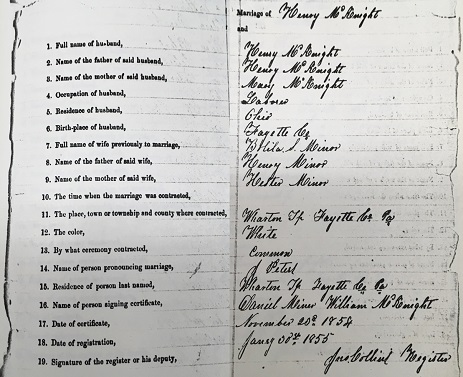 Marriage of Henry McKnight
and
1. Full name of husband, Henry McKnight
2. Name of the father of said husband, Henry McKnight
3. Name of the mother of said husband, Mary McKnight
4. Occupation of husband, Laborer
5. Residence of husband, Ohio
6. Birth-place of husband, Fayette Co
7. Full name of wife previously to marriage, S. Minor
8. Name of the father of said wife, Henry Minor
9. Name of the mother of said wife, Hester Minor
10. The time when the marriage was contracted,
11. The place, town or township and county where contracted, Wharton Tp Fayette Co Pa
12. The color, White
13. By what ceremony contracted, Common
14. Name of person pronouncing marriage, J Peters
15. Residence of person last named, Wharton Tp Fayette Co Pa
16. Name of person signing certificate, Daniel Minor William McKnight
17. Date of certificate, November 1854
18. Date of registration, Jany 30th 1855
19. Signature of the register or his deputy, Jos Collins Register